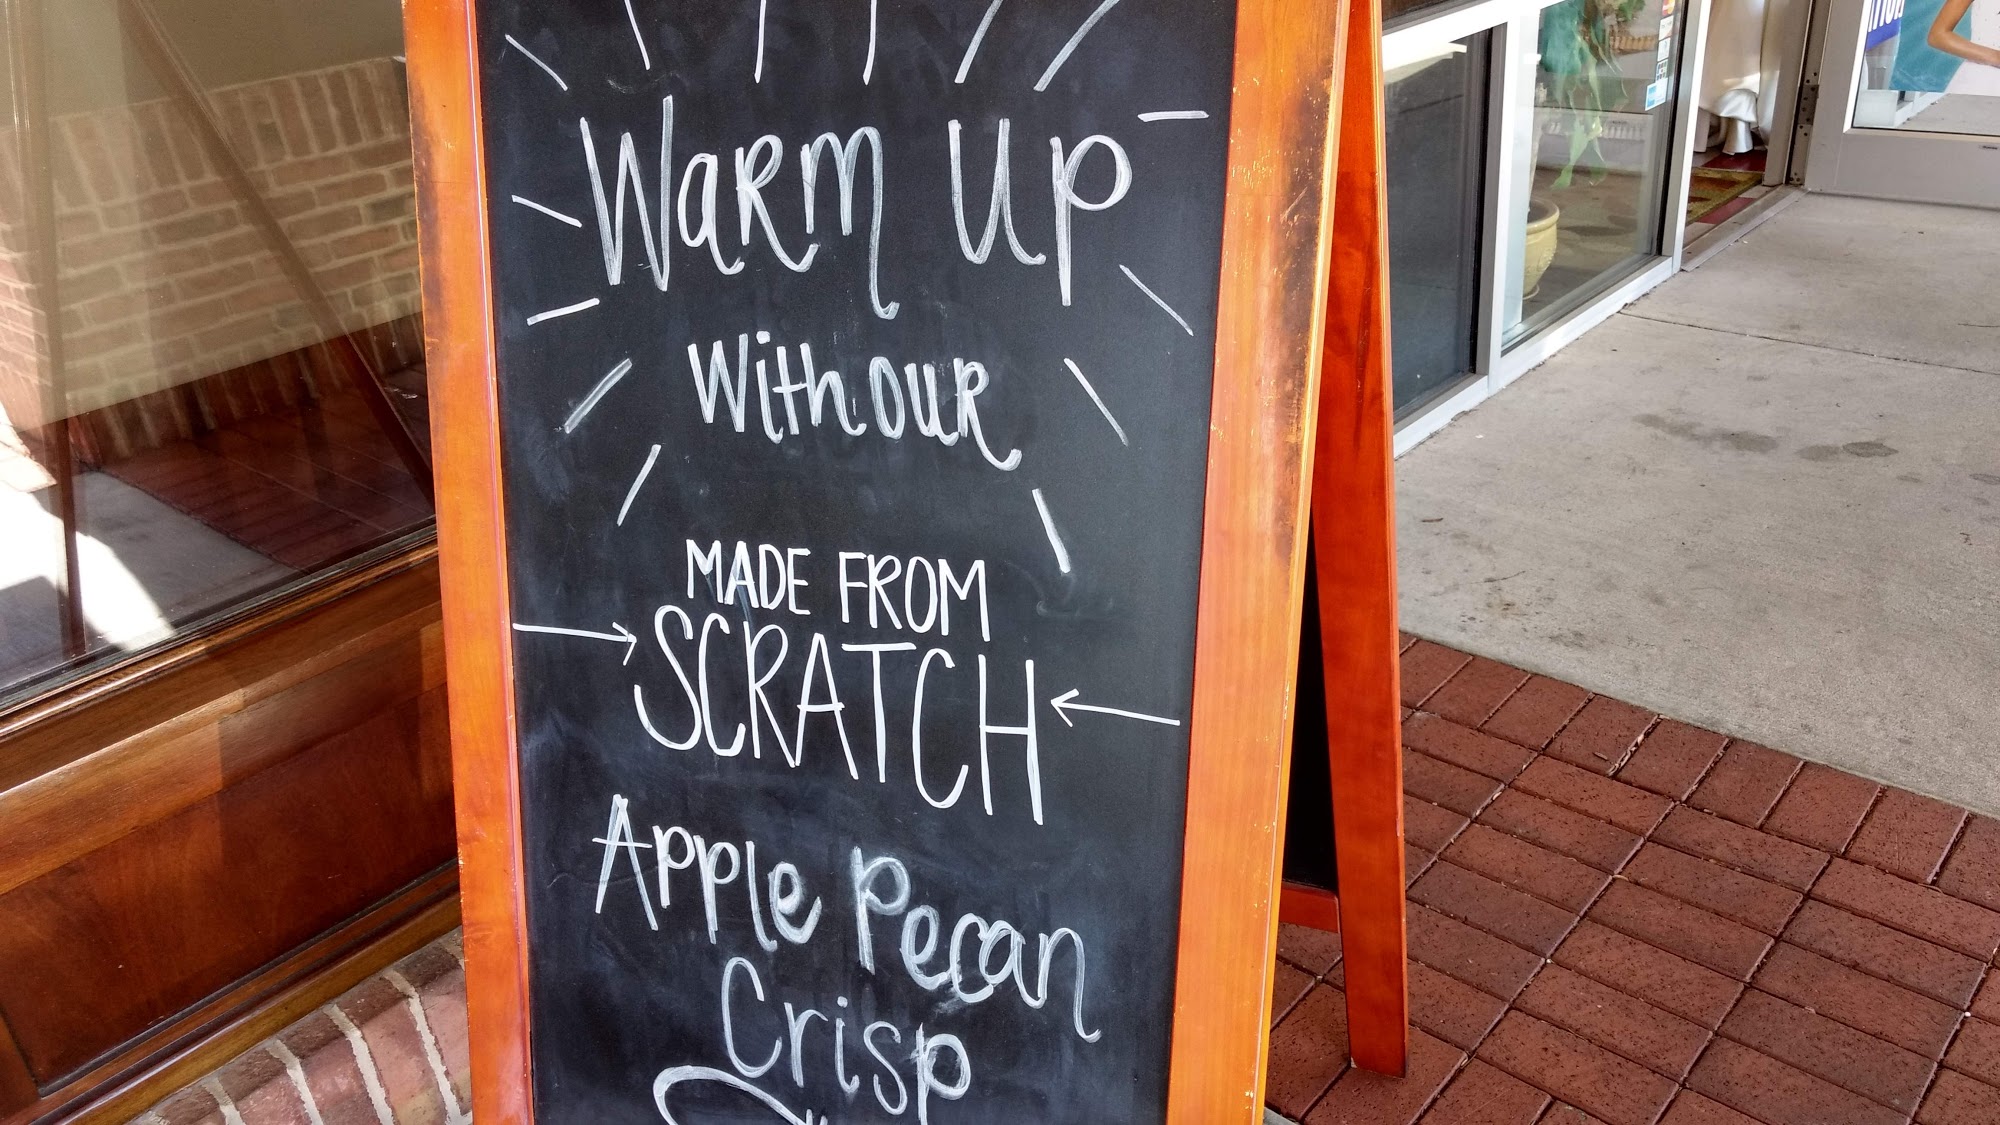 Warm up
with our
MADE FROM
SCRATCH
Apple Pecan
Crisp